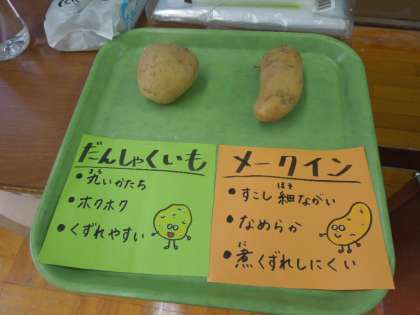 だんしゃくいも
・丸いかたち
・ホクホク
・くずれやすい
メークイン
・すこし細ながい
・なめらか
・煮くずれしにくい